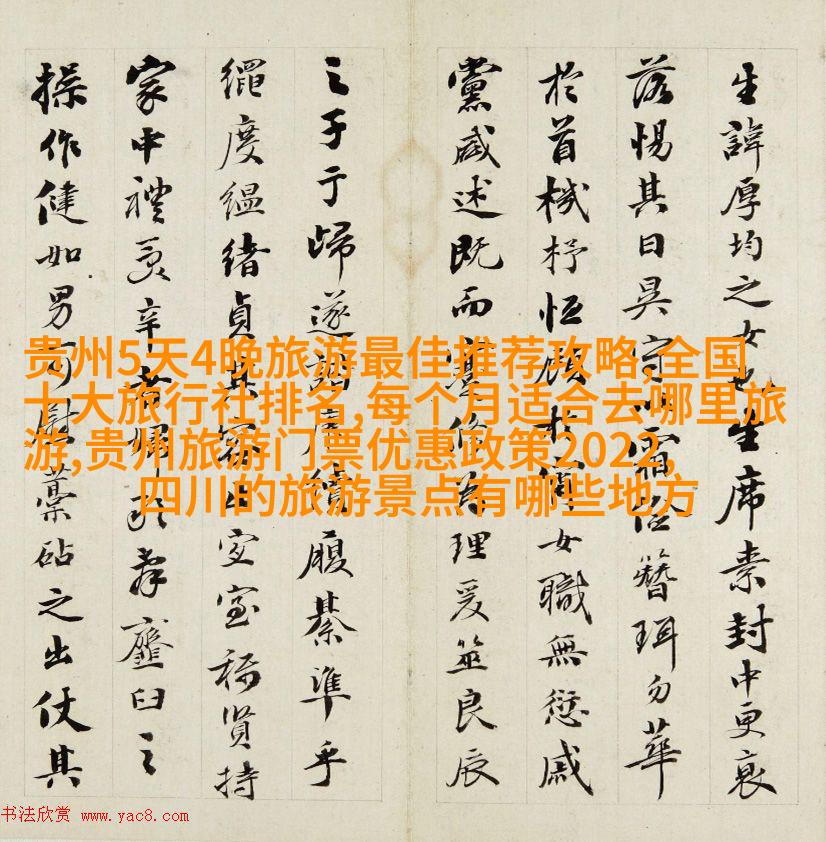 生諱厚均之女也生席素封中更衰
落惕其日昃守霜簪珥勿華
於首機杼恒顧於女職無愆戚
黨咸述既而蹇修為理爰筮良辰
之子于歸遂履綦準乎
繩度縕緒貞其室稱賢持
家中禮辛臼之
操作健如男可慰藁砧之出仗其
贵州5天4晚旅游最佳推荐攻略,全国
十大旅行社排名,每个月适合去哪里旅
游,贵州旅游门票优惠政策2022,
四川的旅游景点有哪些地方
书法欣赏 www.yac8.com